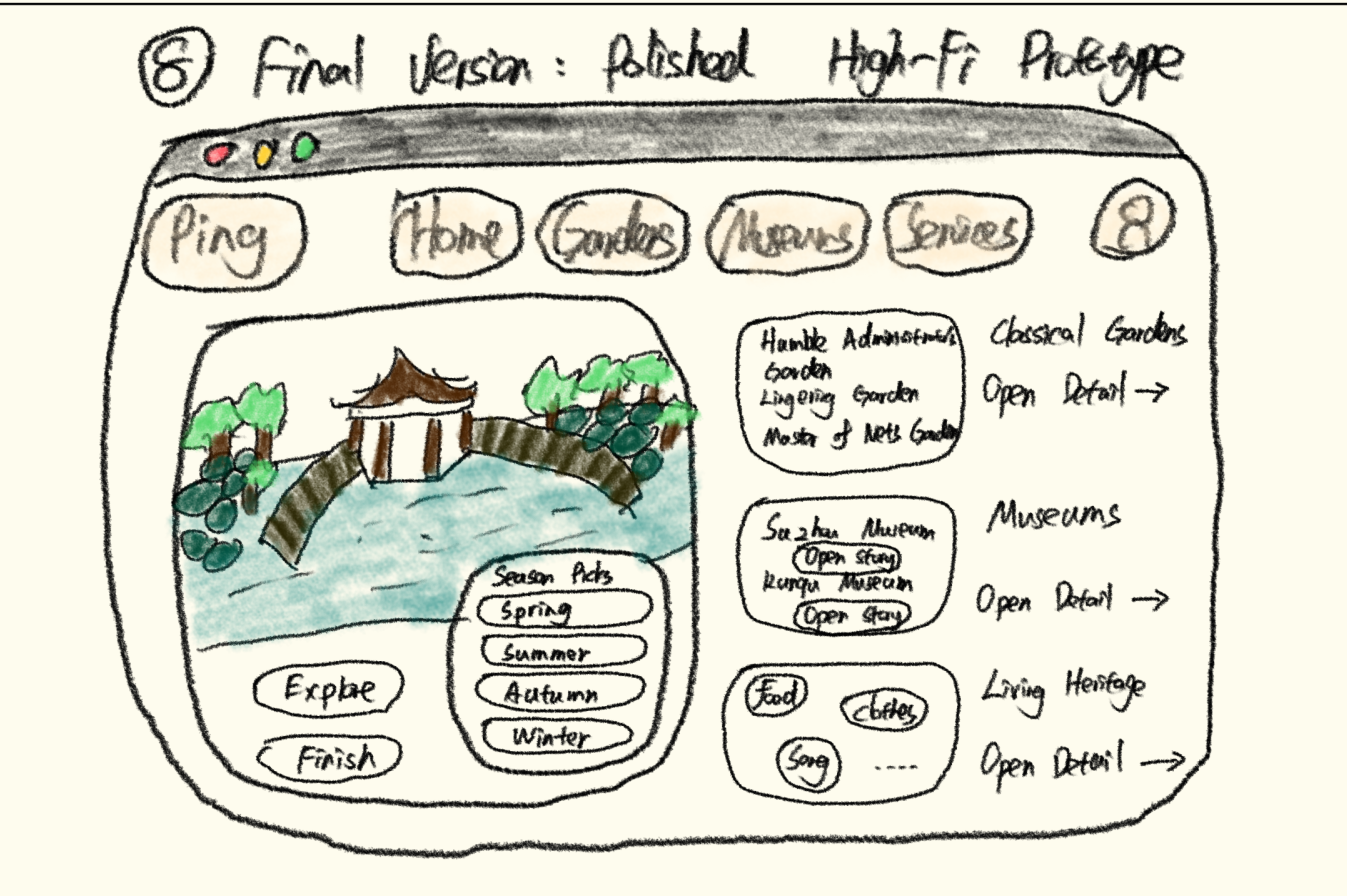 8 Final Version: Polished High-Fi Prototype
Ping Home Gardens Museums Services
Humble Administrator's
Garden
Lingering Garden
Master of Nets Garden
Classical Gardens
Open Detail →
Suzhou Museum
Open story
Kunqu Museum
Open story
Museums
Open Detail →
Food
Clothes
Song
....
Living Heritage
Open Detail →
Season Picks
Spring
Summer
Autumn
Winter
Explore
Finish